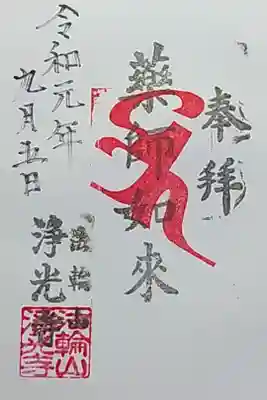 奉拝
薬師如來
法輪山
浄光寺
令和元年
九月五日
法輪山
浄光寺